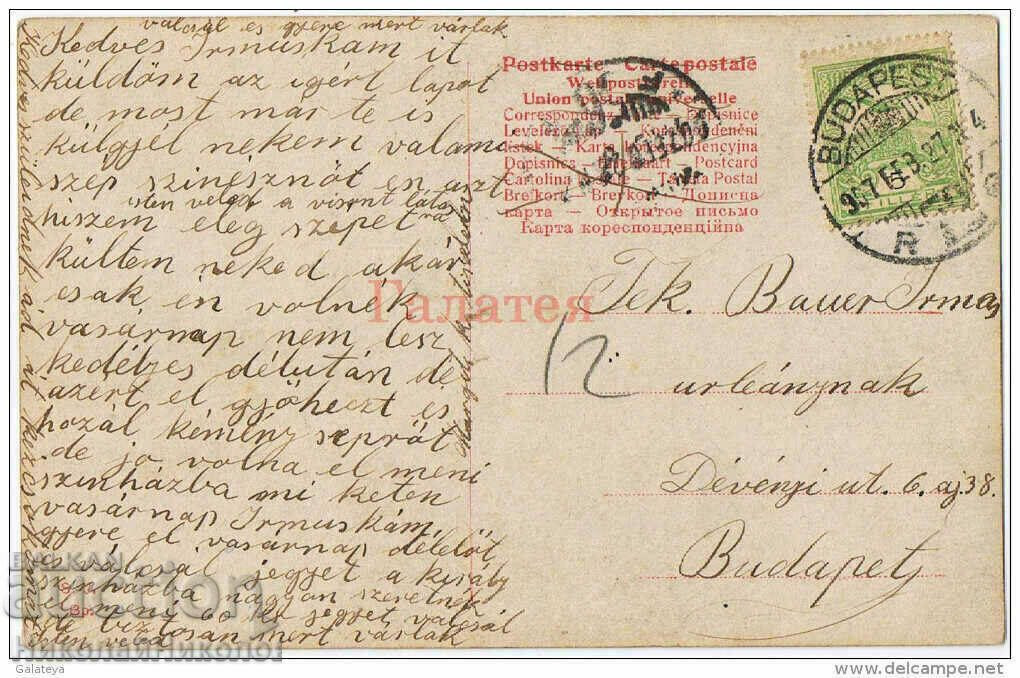 valcsál es gyere mert várlak
Kedves Irmuskám it
küldöm az igért lapot
de most már te is
külgyél nekem valami
szép szinésznöt en azt
isten veled a viszont láta
hiszem elég szépet
kültem neked akár
csak én volnék
vasárnap nem lesz
kedélzes délután de
azért el gyöheczt és
hozál kémény seprät
de jo volna el meni
szinházba mi keten
vasárnap Irmuskám
gyere el vasárnap délelöt
és valcsál jegyet a király
szinházba nagyon szeretnék
el meni oda jegyet valcsál
de biztosan mert várlak
isten veled
Kedves szüleidnek ád át
Postkarte Carte postale
Weltpostverein
Union postale universelle
Correspondenzkarte – Dopisnice
Levelezö-Lap – Korespondenční
lístek – Karta korespondencyjna
Dopisnica – Postcard
Cartolina postale – Tarjeta Postal
Brefkort – Brevkort – Дописна
карта – Открытое письмо
Карта кореспонденційна
BUDAPEST
907 FEB 27
6
FILLÉR
Галатея
Tek. Bauer Irma
urleánynak
12
Dévényi ut. 6. aj. 38.
Budapest
BALKAN
auction
НиколайНиколов
Galateya
delcampe.net